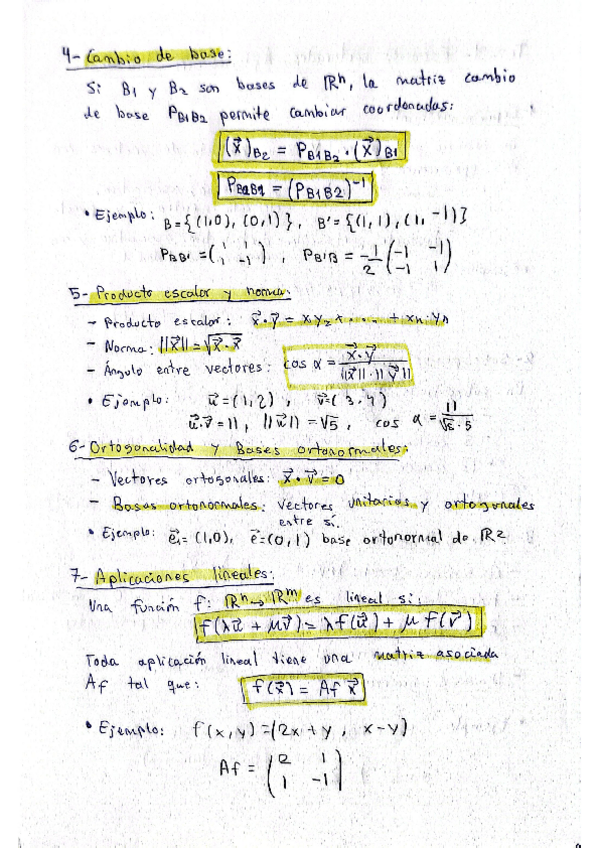 4- Cambio de base:
Si B1 y B2 son bases de ℝⁿ, la matriz cambio
de base P_B1B2 permite cambiar coordenadas:
(x⃗)_B2 = P_B1B2 · (x⃗)_B1
P_B2B1 = (P_B1B2)⁻¹
• Ejemplo: B={(1,0), (0,1)}, B'={(1,1),(1,-1)}
P_BB' = (1 -1), P_B'B = -1/2 (-1 -1
-1 1)
5- Producto escalar y norma:
- Producto escalar: x⃗·y⃗ = x y₂ + .... + xn·yn
- Norma: ||x⃗|| = √x⃗·x⃗
- Ángulo entre vectores: cos α = x⃗·y⃗ / ||x⃗||·||y⃗||
• Ejemplo: u⃗=(1,2), v⃗=(3,4)
u⃗·v⃗=11, ||u⃗||=√5, cos α = 11 / √5·5
6- Ortogonalidad y Bases ortonormales:
- Vectores ortogonales: x⃗·v⃗=0
- Bases ortonormales: vectores unitarios y ortogonales
entre sí.
• Ejemplo: e⃗₁=(1,0), e⃗=(0,1) base ortonormal de ℝ²
7- Aplicaciones lineales:
Una función f: ℝⁿ→ℝᵐ es lineal si:
f(λu⃗ + μv⃗) = λf(u⃗) + μ f(v⃗)
Toda aplicación lineal tiene una matriz asociada
Af tal que: f(x⃗) = Af x⃗
• Ejemplo: f(x,y)=(2x+y, x-y)
Af = (2 1
1 -1)